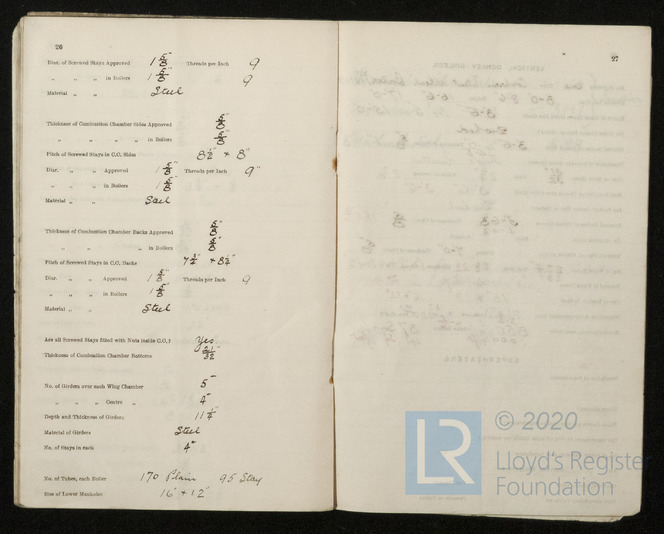 26
Diar. of Screwed Stays Approved 1 5/8" Threads per Inch 9
" " " in Boilers 1 5/8" 9
Material " " Steel
Thickness of Combustion Chamber Sides Approved 5/8"
" " " " in Boilers 5/8"
Pitch of Screwed Stays in C.C. Sides 8 1/2" + 8"
Diar. " " Approved 1 5/8" Threads per Inch 9"
" " " in Boilers 1 5/8"
Material " " Steel
Thickness of Combustion Chamber Backs Approved 5/8"
" " " in Boilers 5/8"
Pitch of Screwed Stays in C.C. Backs
Diar. " " Approved 1 5/8" Threads per Inch 9
" " " in Boilers 1 5/8"
Material " " Steel
Are all Screwed Stays fitted with Nuts inside C.C.? Yes
Thickness of Combustion Chamber Bottoms 21/32"
No. of Girders over each Wing Chamber 5"
" " " Centre " 4"
Depth and Thickness of Girders
Material of Girders Steel
No. of Stays in each 4"
No. of Tubes, each Boiler 170 Plain 95 Stay
Size of Lower Manholes 16" + 12"
27
LR
© 2020
Lloyd's Register
Foundation